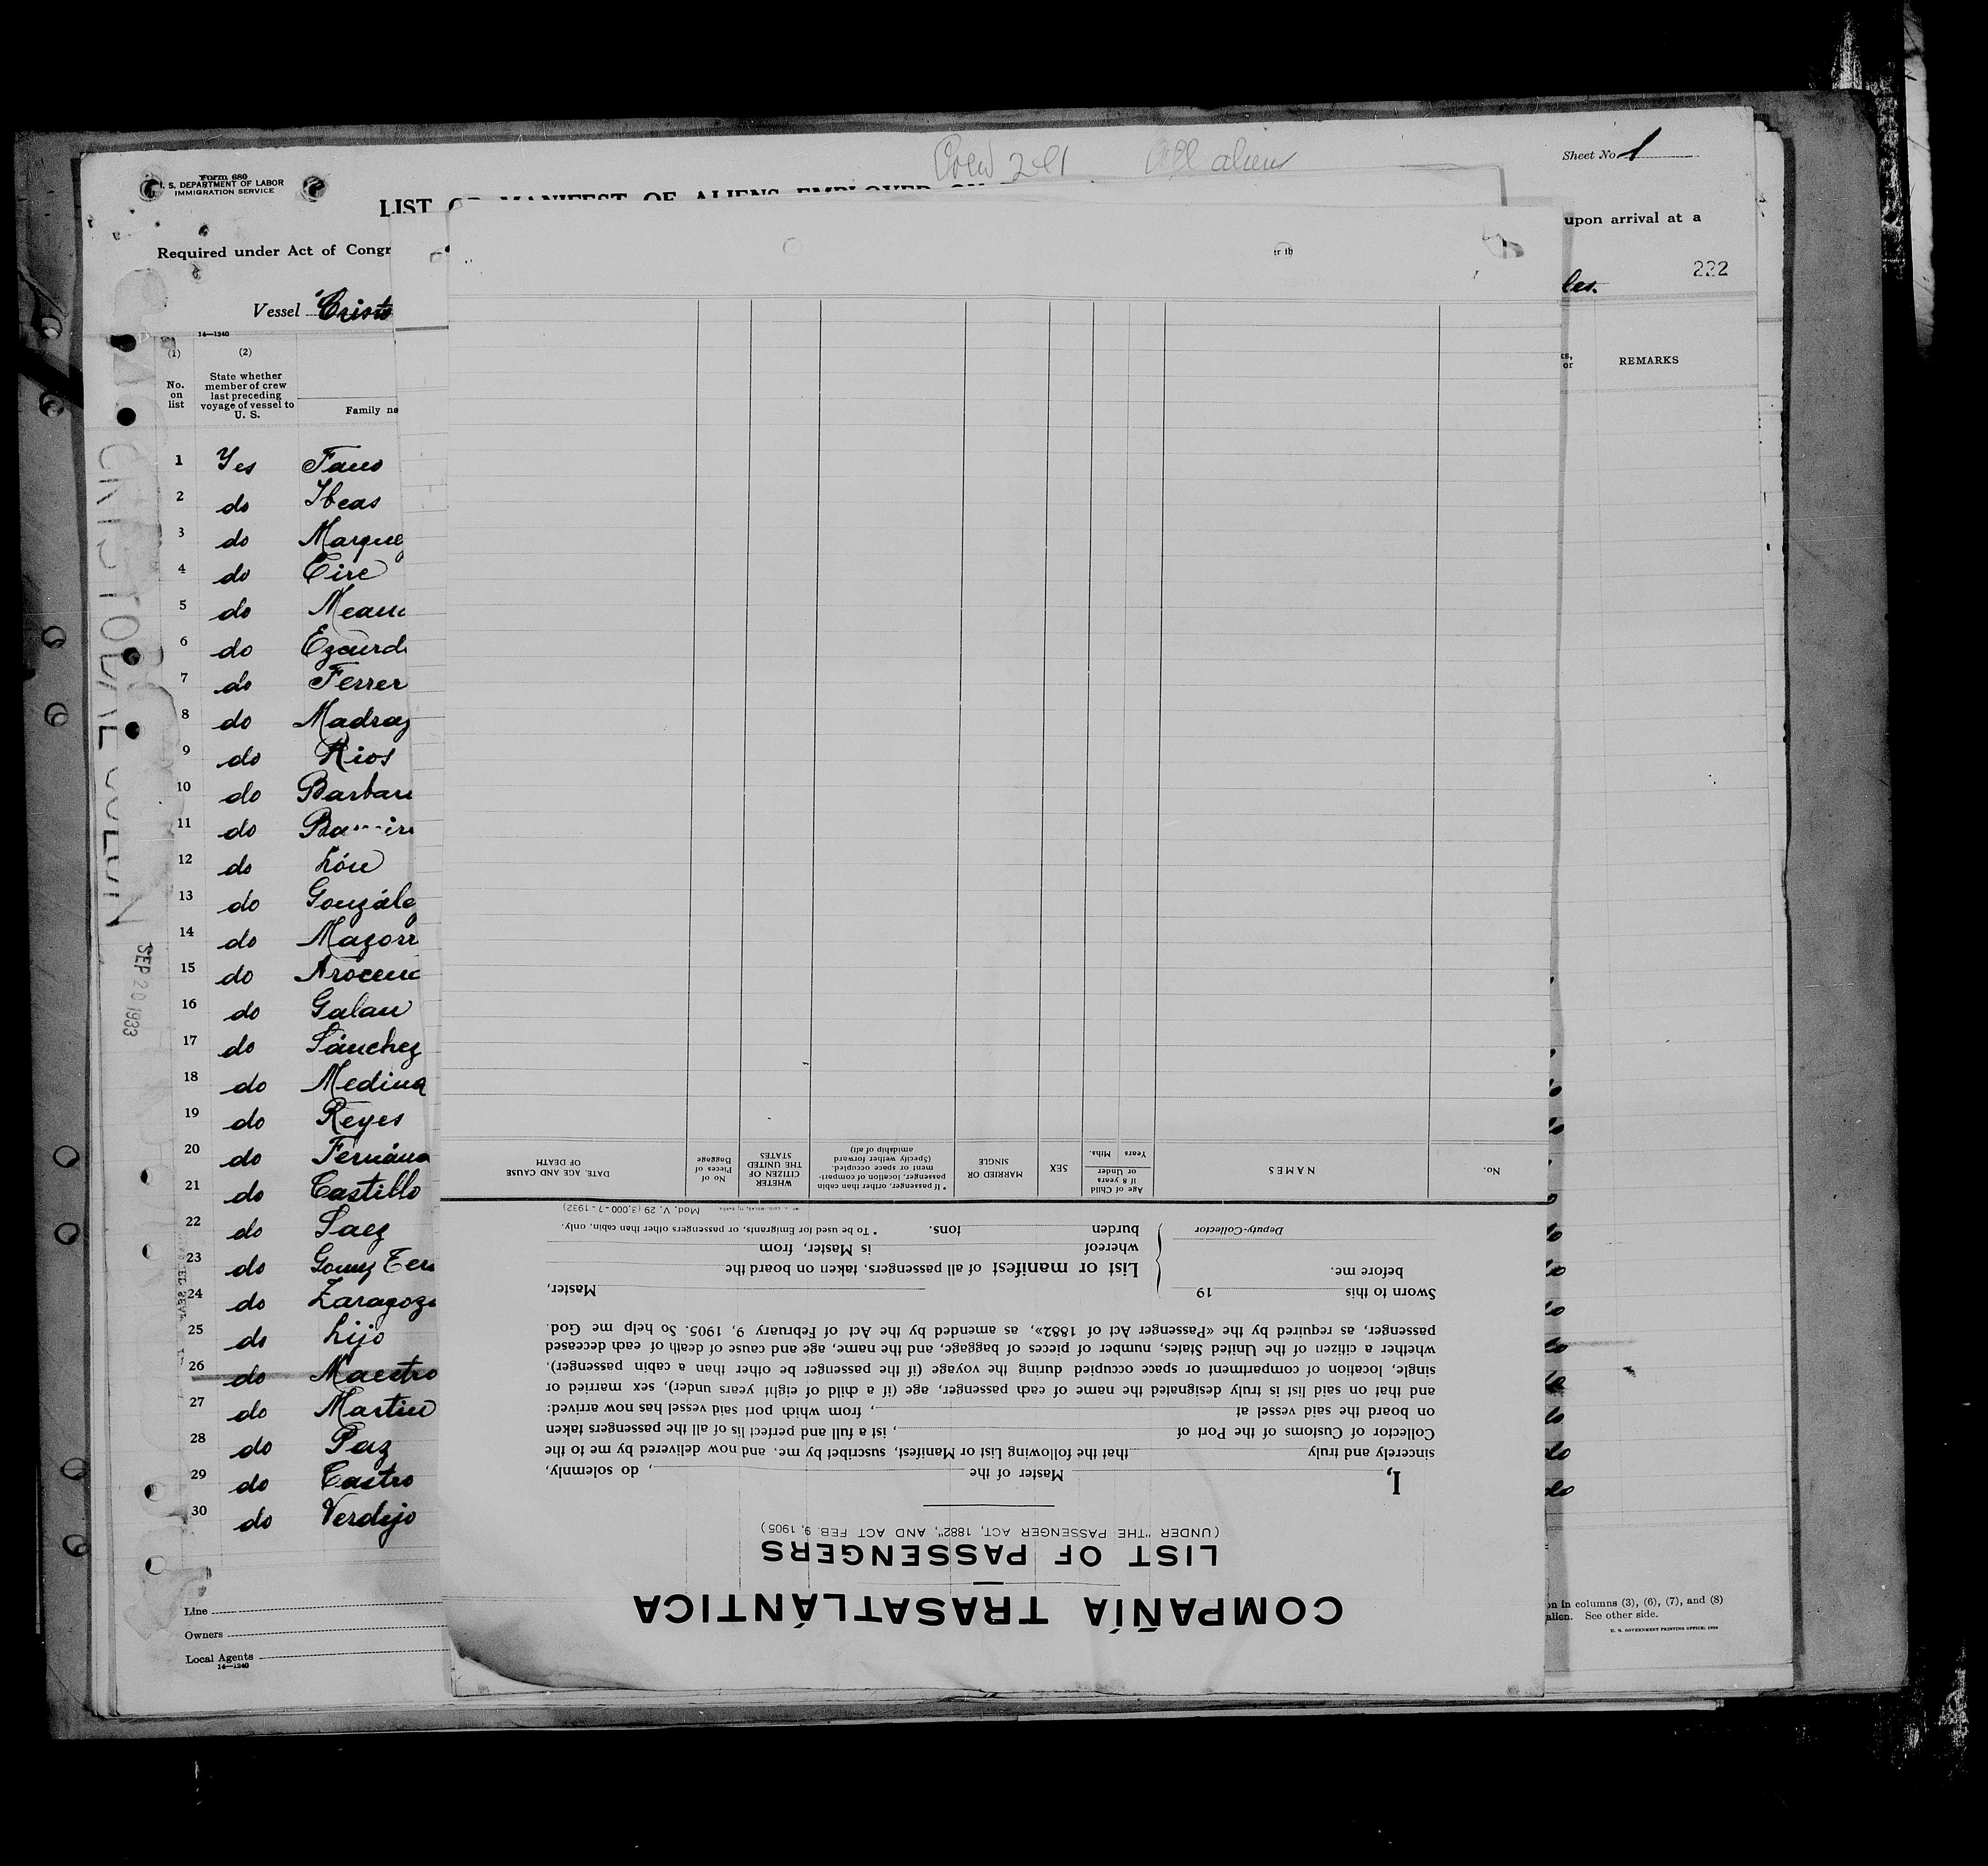 Crew 241 All alien
Sheet No 1
Form 680
U. S. DEPARTMENT OF LABOR
IMMIGRATION SERVICE
LIST OR MANIFEST OF ALIENS EMPLOYED ON
upon arrival at a
Required under Act of Congr
222
Vessel Cristo
les.
14—1240
(1) (2)
No. on list
State whether member of crew last preceding voyage of vessel to U. S.
Family na
REMARKS
1 Yes Fano
2 do Ibeas
3 do Marquez
4 do Eire
5 do
6 do Ezcurd
7 do Ferrer
8 do Madraz
9 do Rios
10 do Barbar
11 do
12 do
13 do Gonzále
14 do Mazorr
15 do Arocena
16 do Galan
17 do Sánchez
18 do Medina
19 do Reyes
20 do Fernán
21 do Castillo
22 do Saez
23 do
24 do Zaragoz
25 do Lijo
26 do Maestro
27 do Martin
28 do Paz
29 do Castro
30 do Verdejo
CRISTOBAL COLON
SEP 20 1933
Line
Owners
Local Agents
14—1240
on in columns (3), (6), (7), and (8)
alien. See other side.
U. S. GOVERNMENT PRINTING OFFICE: 1930
COMPAÑÍA TRASATLÁNTICA
LIST OF PASSENGERS
(UNDER "THE PASSENGER ACT, 1882", AND ACT FEB. 9, 1905)
I, Master of the , do solemnly,
sincerely and truly that the following List or Manifest, suscribet by me. and now delivered by me to the
Collector of Customs of the Port of , ist a full and perfect lis of all the passengers taken
on board the said vessel at , from which port said vessel has now arrived:
and that on said list is truly designated the name of each passenger, age (if a child of eight years under), sex married or
single, location of compartment or space occupied during the voyage (if the passenger be other than a cabin passenger),
whether a citizen of the United States, number of pieces of baggage, and the name, age and cause of death of each deceased
passenger, as required by the «Passenger Act of 1882», as amended by the Act of February 9, 1905. So help me God.
Sworn to this 19 Master,
before me.
List or manifest of all passengers, taken on board the
whereof is Master, from
burden tons.
Deputy-Collector
* To be used for Emigrants, or passengers other than cabin, only.
Mod. V. 29 (3,000 - 7 - 1932)
No.
NAMES
Age of Child if 8 years or Under
Years Mths.
SEX
MARRIED OR SINGLE
* If passenger, orther than cabin passenger, location of compartment or space occupied. (Specify wether forward amidship of aft)
WHETER CITIZEN OF THE UNITED STATES
No of Pieces of Baggage
DATE, AGE AND CAUSE OF DEATH